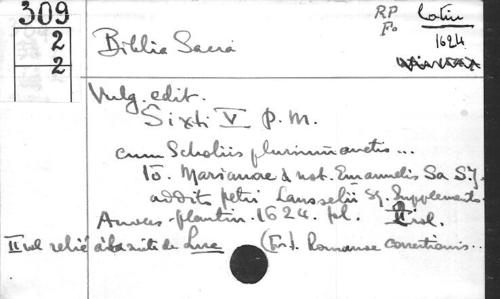 309
2
2
RP
Fo
Latin
1624
Biblia Sacra
Vulg. edit.
Sixti V P. M.
cum Scholiis plurimum auctis...
Io. Marianae & not. Emanuelis Sa S.J.
addito Petri Lansselii SJ. Supplemento.
Anvers. plantin. 1624. pl. II vol.
II vol relié à la suite de Luc (Fr. Romanae correctionis...